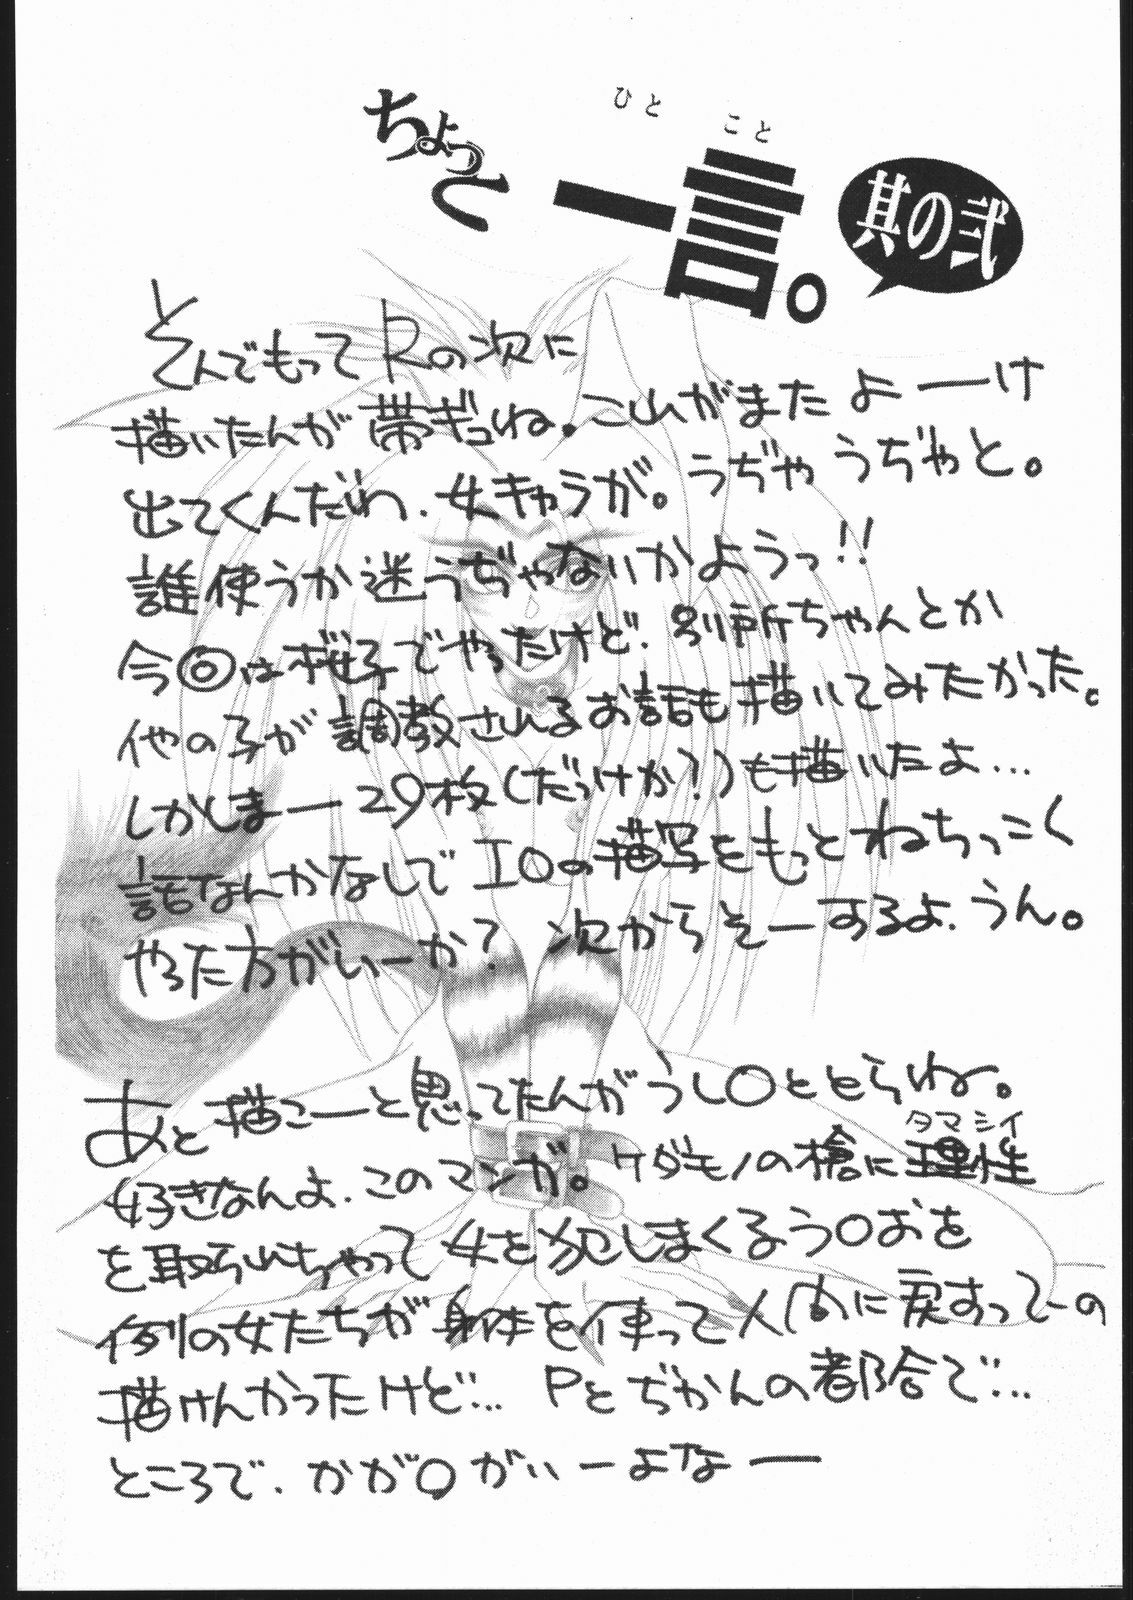 ちょっと一言。
ひとこと
其の弐
そんでもってRの次に
描いたんが帯ギュね。これがまたよーーけ
出てくんだわ、女キャラが。うぢゃうぢゃと。
誰使うか迷うぢゃないかようっ!!
今回は桜子でやったけど、別所ちゃんとか
他の子が調教されるお話も描いてみたかった。
しかしまー29枚(だっけか?)も描いたよ…
話なんかなしでIOの描写をもっとねちっこく
やった方がいーか?次からそーするよ、うん。
あと描こーと思ってたんがうし〇ととらね。
好きなんよ、このマンガ。ケダモノの槍に理性
タマシイ
を取られちゃって女を犯しまくるう〇おを
例の女たちが身体を使って人間に戻すってーの
描けんかったけど… Pとぢかんの都合で…
ところで、かが〇がいーよなー